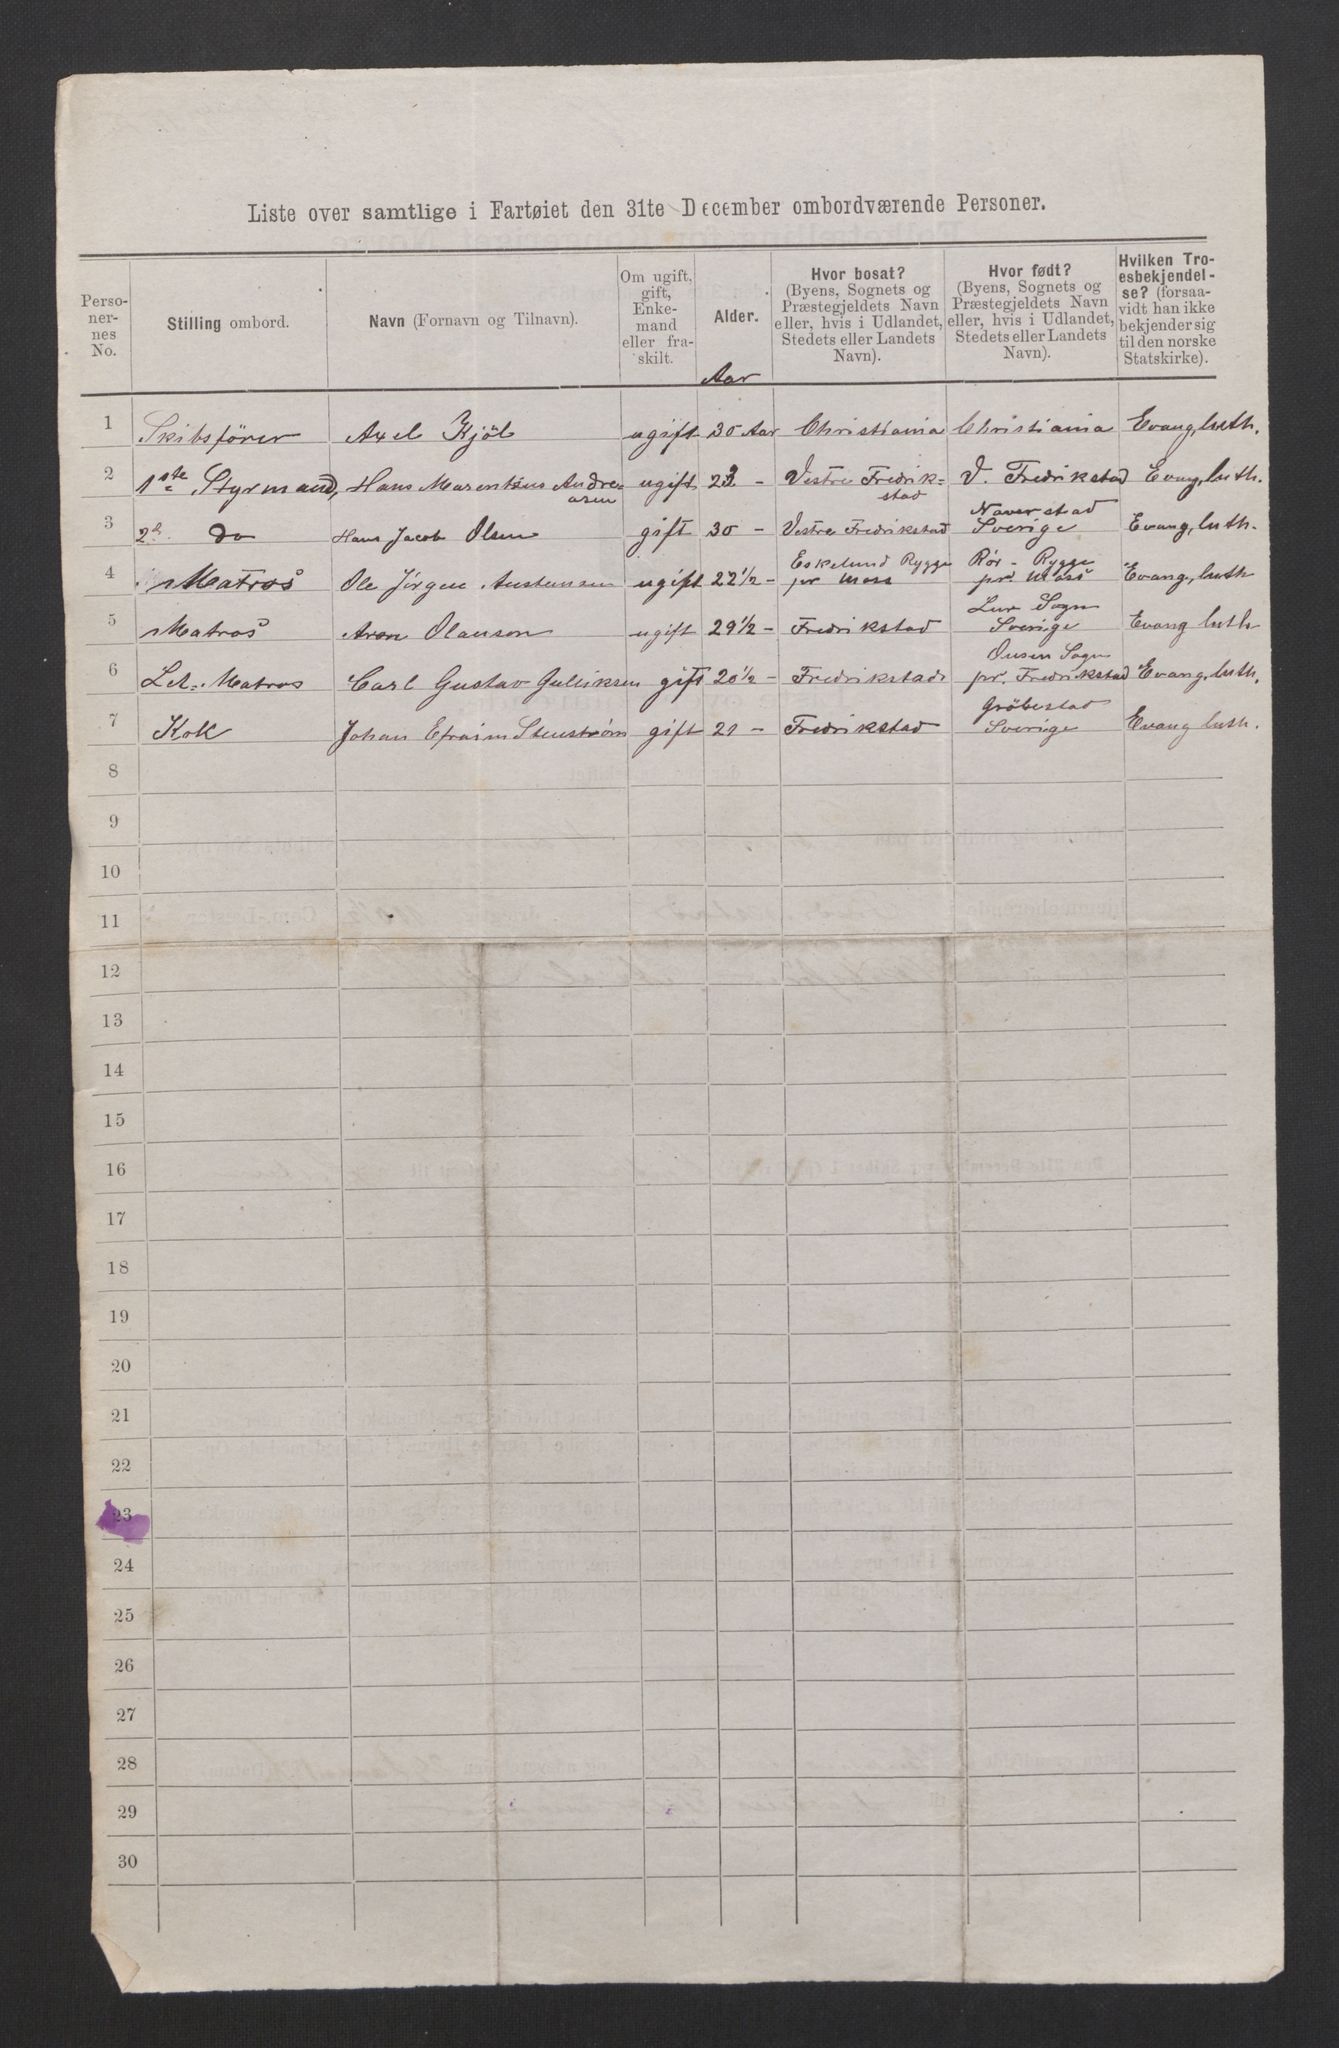 Liste over samtlige i Fartøiet den 31te December ombordværende Personer.
Perso-
ner-
nes
No.
Stilling ombord.
Navn (Fornavn og Tilnavn).
Om ugift,
gift,
Enke-
mand
eller fra-
skilt.
Alder.
Hvor bosat?
(Byens, Sognets og
Præstegjeldets Navn
eller, hvis i Udlandet,
Stedets eller Landets
Navn).
Hvor født?
(Byens, Sognets og
Præstegjeldets Navn
eller, hvis i Udlandet,
Stedets eller Landets
Navn).
Hvilken Tro-
esbekjendel-
se? (forsaa-
vidt han ikke
bekjender sig
til den norske
Statskirke).
Aar
1 Skibsfører Axel Kjöl ugift 30 Aar Christiania Christiania Evang, luth.
2 1ste Styrmand, Hans Marentius Andre= ugift 23 - Vestre Fredrik= V. Fredrikstad Evang, luth.
asen stad
Naverstad
3 2d do Hans Jacob Olsen gift 30 - Vestre Fredrikstad Sverige Evang, luth.
Eskelund Rygge Rør - Rygge
4 Matros Ole Jörgen Austensen ugift 22 1/2 - pr Moss pr Moss Evang, luth
Lur Sogn
5 Matros Aron Olauson ugift 29 1/2 - Fredrikstad Sverige Evang luth
Onsøn Sogn
6 Let. Matros Carl Gustav Gulliksen gift 20 1/2 - Fredrikstad pr. Fredrikstad Evang, luth,
Gröbestad
7 Kok Johan Efraim Stenstrøm gift 21 - Fredrikstad Sverige Evang luth.
8
9
10
11
12
13
14
15
16
17
18
19
20
21
22
23
24
25
26
27
28
29
30